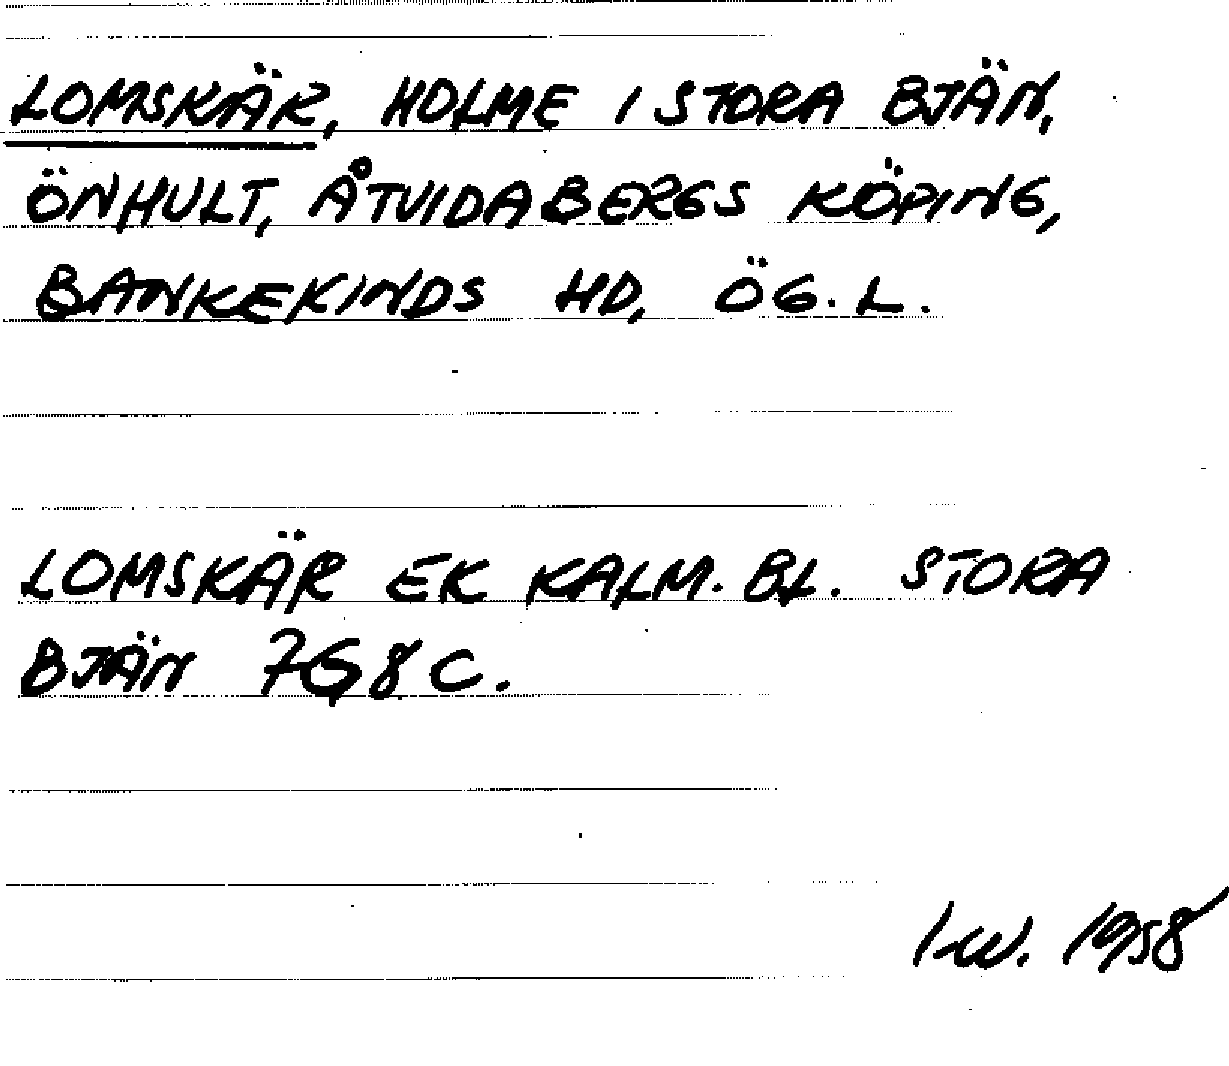 LOMSKÄR, HOLME I STORA BJÄN,
ÖNHULT, ÅTVIDABERGS KÖPING,
BANKEKINDS HD, ÖG. L.
LOMSKÄR EK KALM. BL. STORA
BJÄN 7G8C.
1958